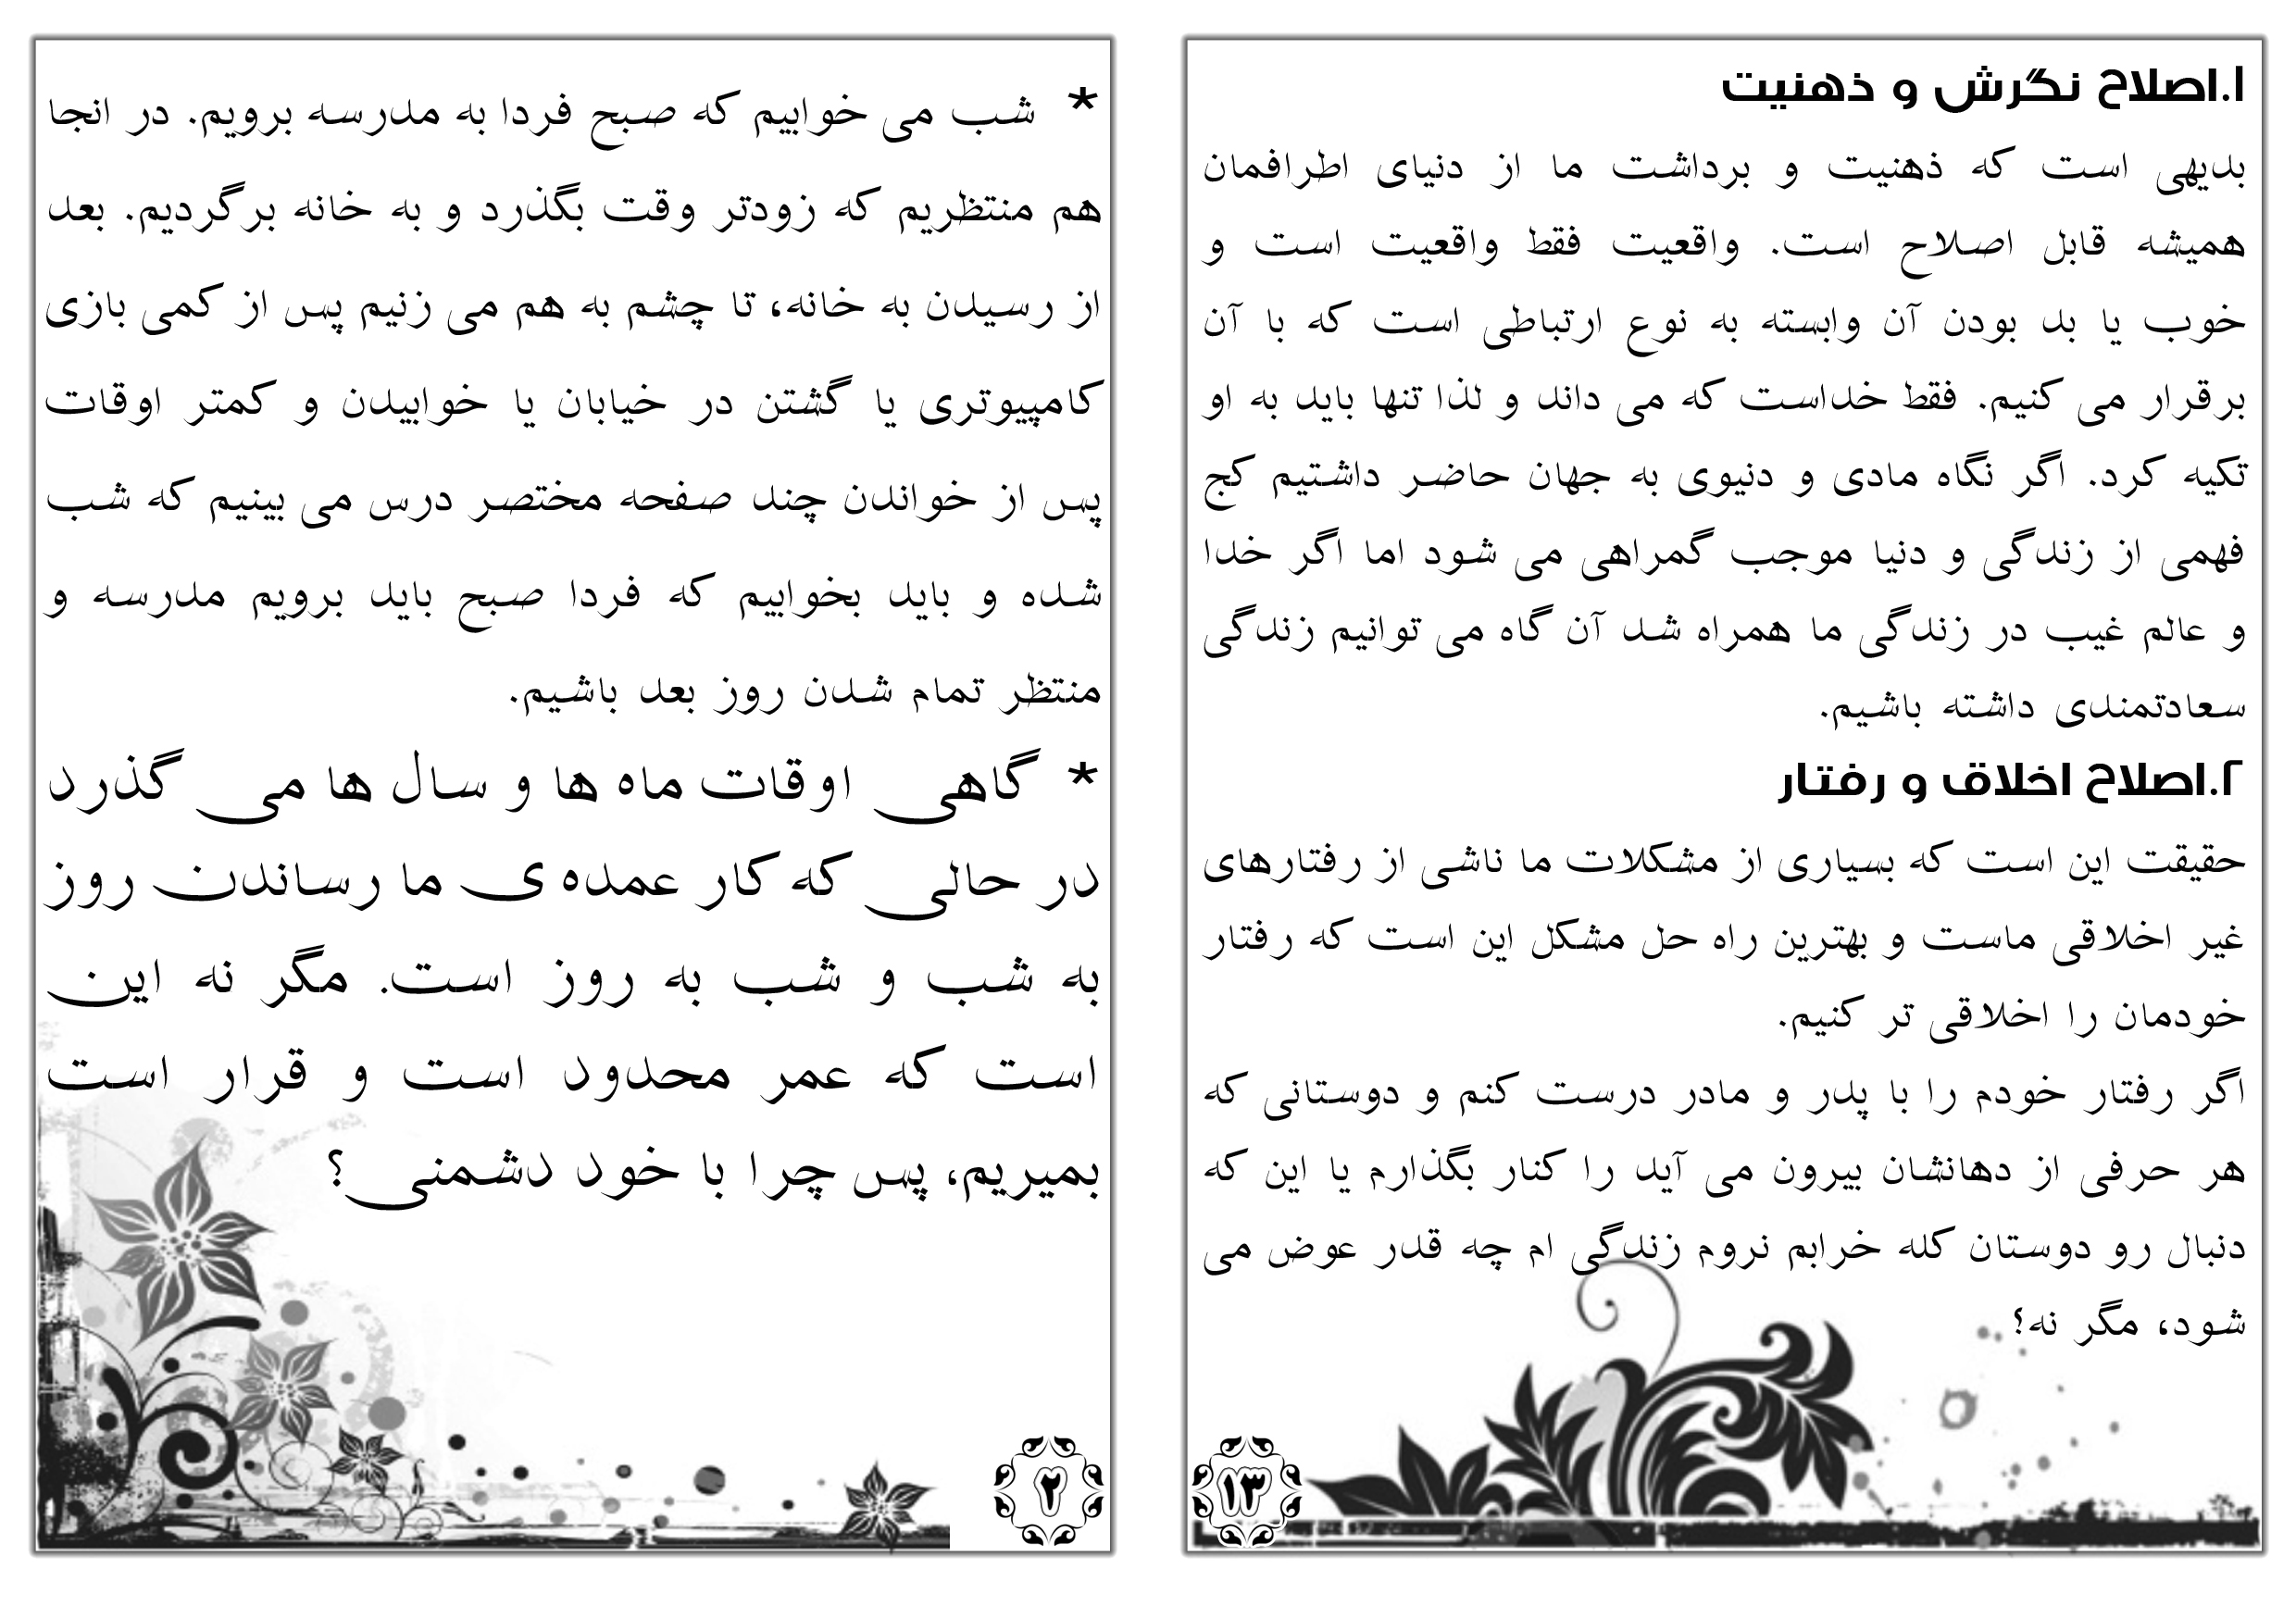 ۱.اصلاح نگرش و ذهنیت
بدیهی است که ذهنیت و برداشت ما از دنیای اطرافمان
همیشه قابل اصلاح است. واقعیت فقط واقعیت است و
خوب یا بد بودن آن وابسته به نوع ارتباطی است که با آن
برقرار می کنیم. فقط خداست که می داند و لذا تنها باید به او
تکیه کرد. اگر نگاه مادی و دنیوی به جهان حاضر داشتیم کج
فهمی از زندگی و دنیا موجب گمراهی می شود اما اگر خدا
و عالم غیب در زندگی ما همراه شد آن گاه می توانیم زندگی
سعادتمندی داشته باشیم.
۲.اصلاح اخلاق و رفتار
حقیقت این است که بسیاری از مشکلات ما ناشی از رفتارهای
غیر اخلاقی ماست و بهترین راه حل مشکل این است که رفتار
خودمان را اخلاقی تر کنیم.
اگر رفتار خودم را با پدر و مادر درست کنم و دوستانی که
هر حرفی از دهانشان بیرون می آید را کنار بگذارم یا این که
دنبال رو دوستان کله خرابم نروم زندگی ام چه قدر عوض می
شود، مگر نه؟
۱۳
* شب می خوابیم که صبح فردا به مدرسه برویم. در انجا
هم منتظریم که زودتر وقت بگذرد و به خانه برگردیم. بعد
از رسیدن به خانه، تا چشم به هم می زنیم پس از کمی بازی
کامپیوتری یا گشتن در خیابان یا خوابیدن و کمتر اوقات
پس از خواندن چند صفحه مختصر درس می بینیم که شب
شده و باید بخوابیم که فردا صبح باید برویم مدرسه و
منتظر تمام شدن روز بعد باشیم.
* گاهی اوقات ماه ها و سال ها می گذرد
در حالی که کار عمده ی ما رساندن روز
به شب و شب به روز است. مگر نه این
است که عمر محدود است و قرار است
بمیریم، پس چرا با خود دشمنی؟
۲